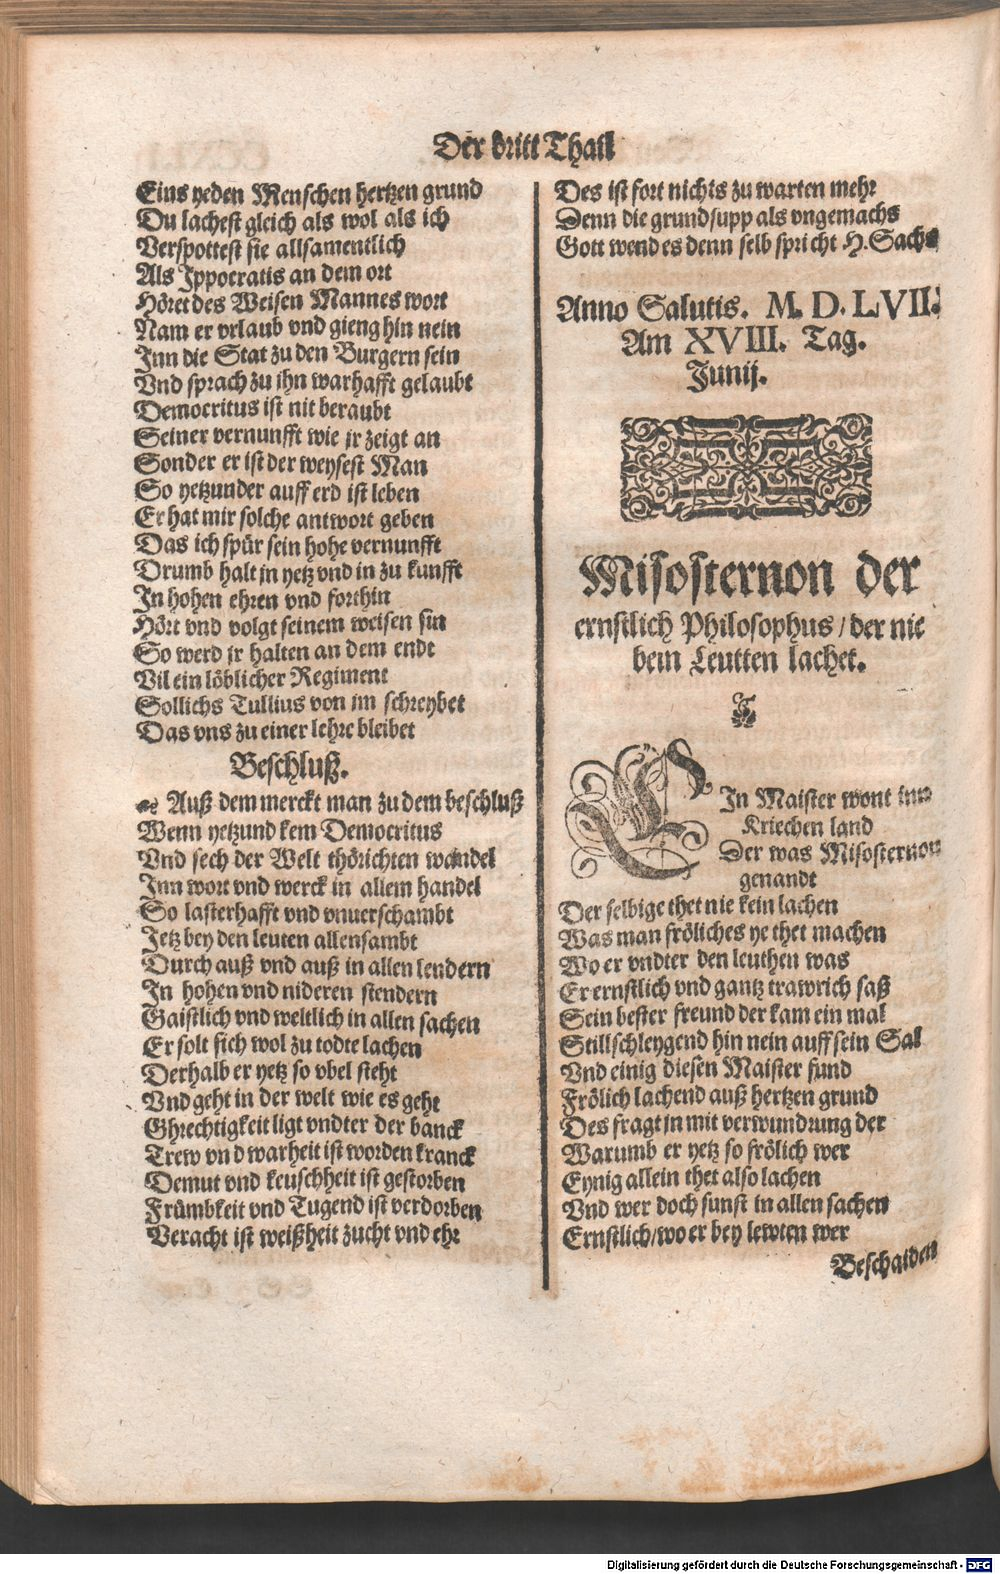 Der dritt Thail
Eins yeden Menschen hertzen grund
Du lachest gleich als wol als ich
Verspottest sie allsamentlich
Als Jppocratis an dem ort
Höret des Weisen Mannes wort
Nam er vrlaub vnd gieng hin nein
Jnn die Stat zu den Burgern sein
Vnd sprach zu jhn warhafft gelaubt
Democritus ist nit beraubt
Seiner vernunfft wie jr zeigt an
Sonder er ist der weysest Man
So yetzunder auff erd ist leben
Er hat mir solche antwort geben
Das ich spür sein hohe vernunfft
Drumb halt jn yetz vnd in zu kunfft
Jn hohen ehren vnd forthin
Hört vnd volgt seinem weisen sin
So werd jr halten an dem endt
Vil ein löblicher Regiment
Sollichs Tullius von jm schreybet
Das vns zu einer lehre bleibet
Beschluß.
Auß dem merckt man zu dem beschluß
Wenn yetzund kem Democritus
Vnd sech der Welt thörichten wandel
Jnn wort vnd werck in allem handel
So lasterhafft vnd vnuerschambt
Jetz bey den leuten allensambt
Durch auß vnd auß in allen lendern
Jn hohen vnd nideren stendern
Gaistlich vnd weltlich in allen sachen
Er solt sich wol zu todte lachen
Derhalb er yetz so vbel steht
Vnd geht in der welt wie es geht
Ghrechtigkeit ligt vndter der banck
Trew vnd warheit ist worden kranck
Demut vnd keuschheit ist gestorben
Frümbkeit vnd Tugend ist verdorben
Veracht ist weißheit zucht vnd ehr
Des ist fort nichts zu warten mehr
Denn die grundsupp als vngemachs
Gott wend es denn selb spricht H. Sachs
Anno Salutis. M. D. LVII.
Am XVIII. Tag.
Junij.
Misosternon der
ernstlich Philosophus / der nie
bein Leutten lachet.
EJn Maister wont inn
Kriechen land
Der was Misosternon
genandt
Der selbige thet nie kein lachen
Was man fröliches ye thet machen
Wo er vndter den leuthen was
Er ernstlich vnd gantz trawrich saß
Sein bester freund der kam ein mal
Stillschleygend hin nein auff sein Sal
Vnd einig diesen Maister fund
Frölich lachend auß hertzen grund
Des fragt jn mit verwundrung der
Warumb er yetz so frölich wer
Eynig allein thet also lachen
Vnd wer doch sunst in allen sachen
Ernstlich/wo er bey lewten wer
Beschaiden
Digitalisierung gefördert durch die Deutsche Forschungsgemeinschaft - DFG